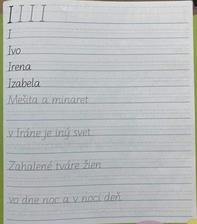 I I I I
I
Ivo
Irena
Izabela
Mešita a minaret
v Iráne je iný svet.
Zahalené tváre žien
vo dne noc a v noci deň.